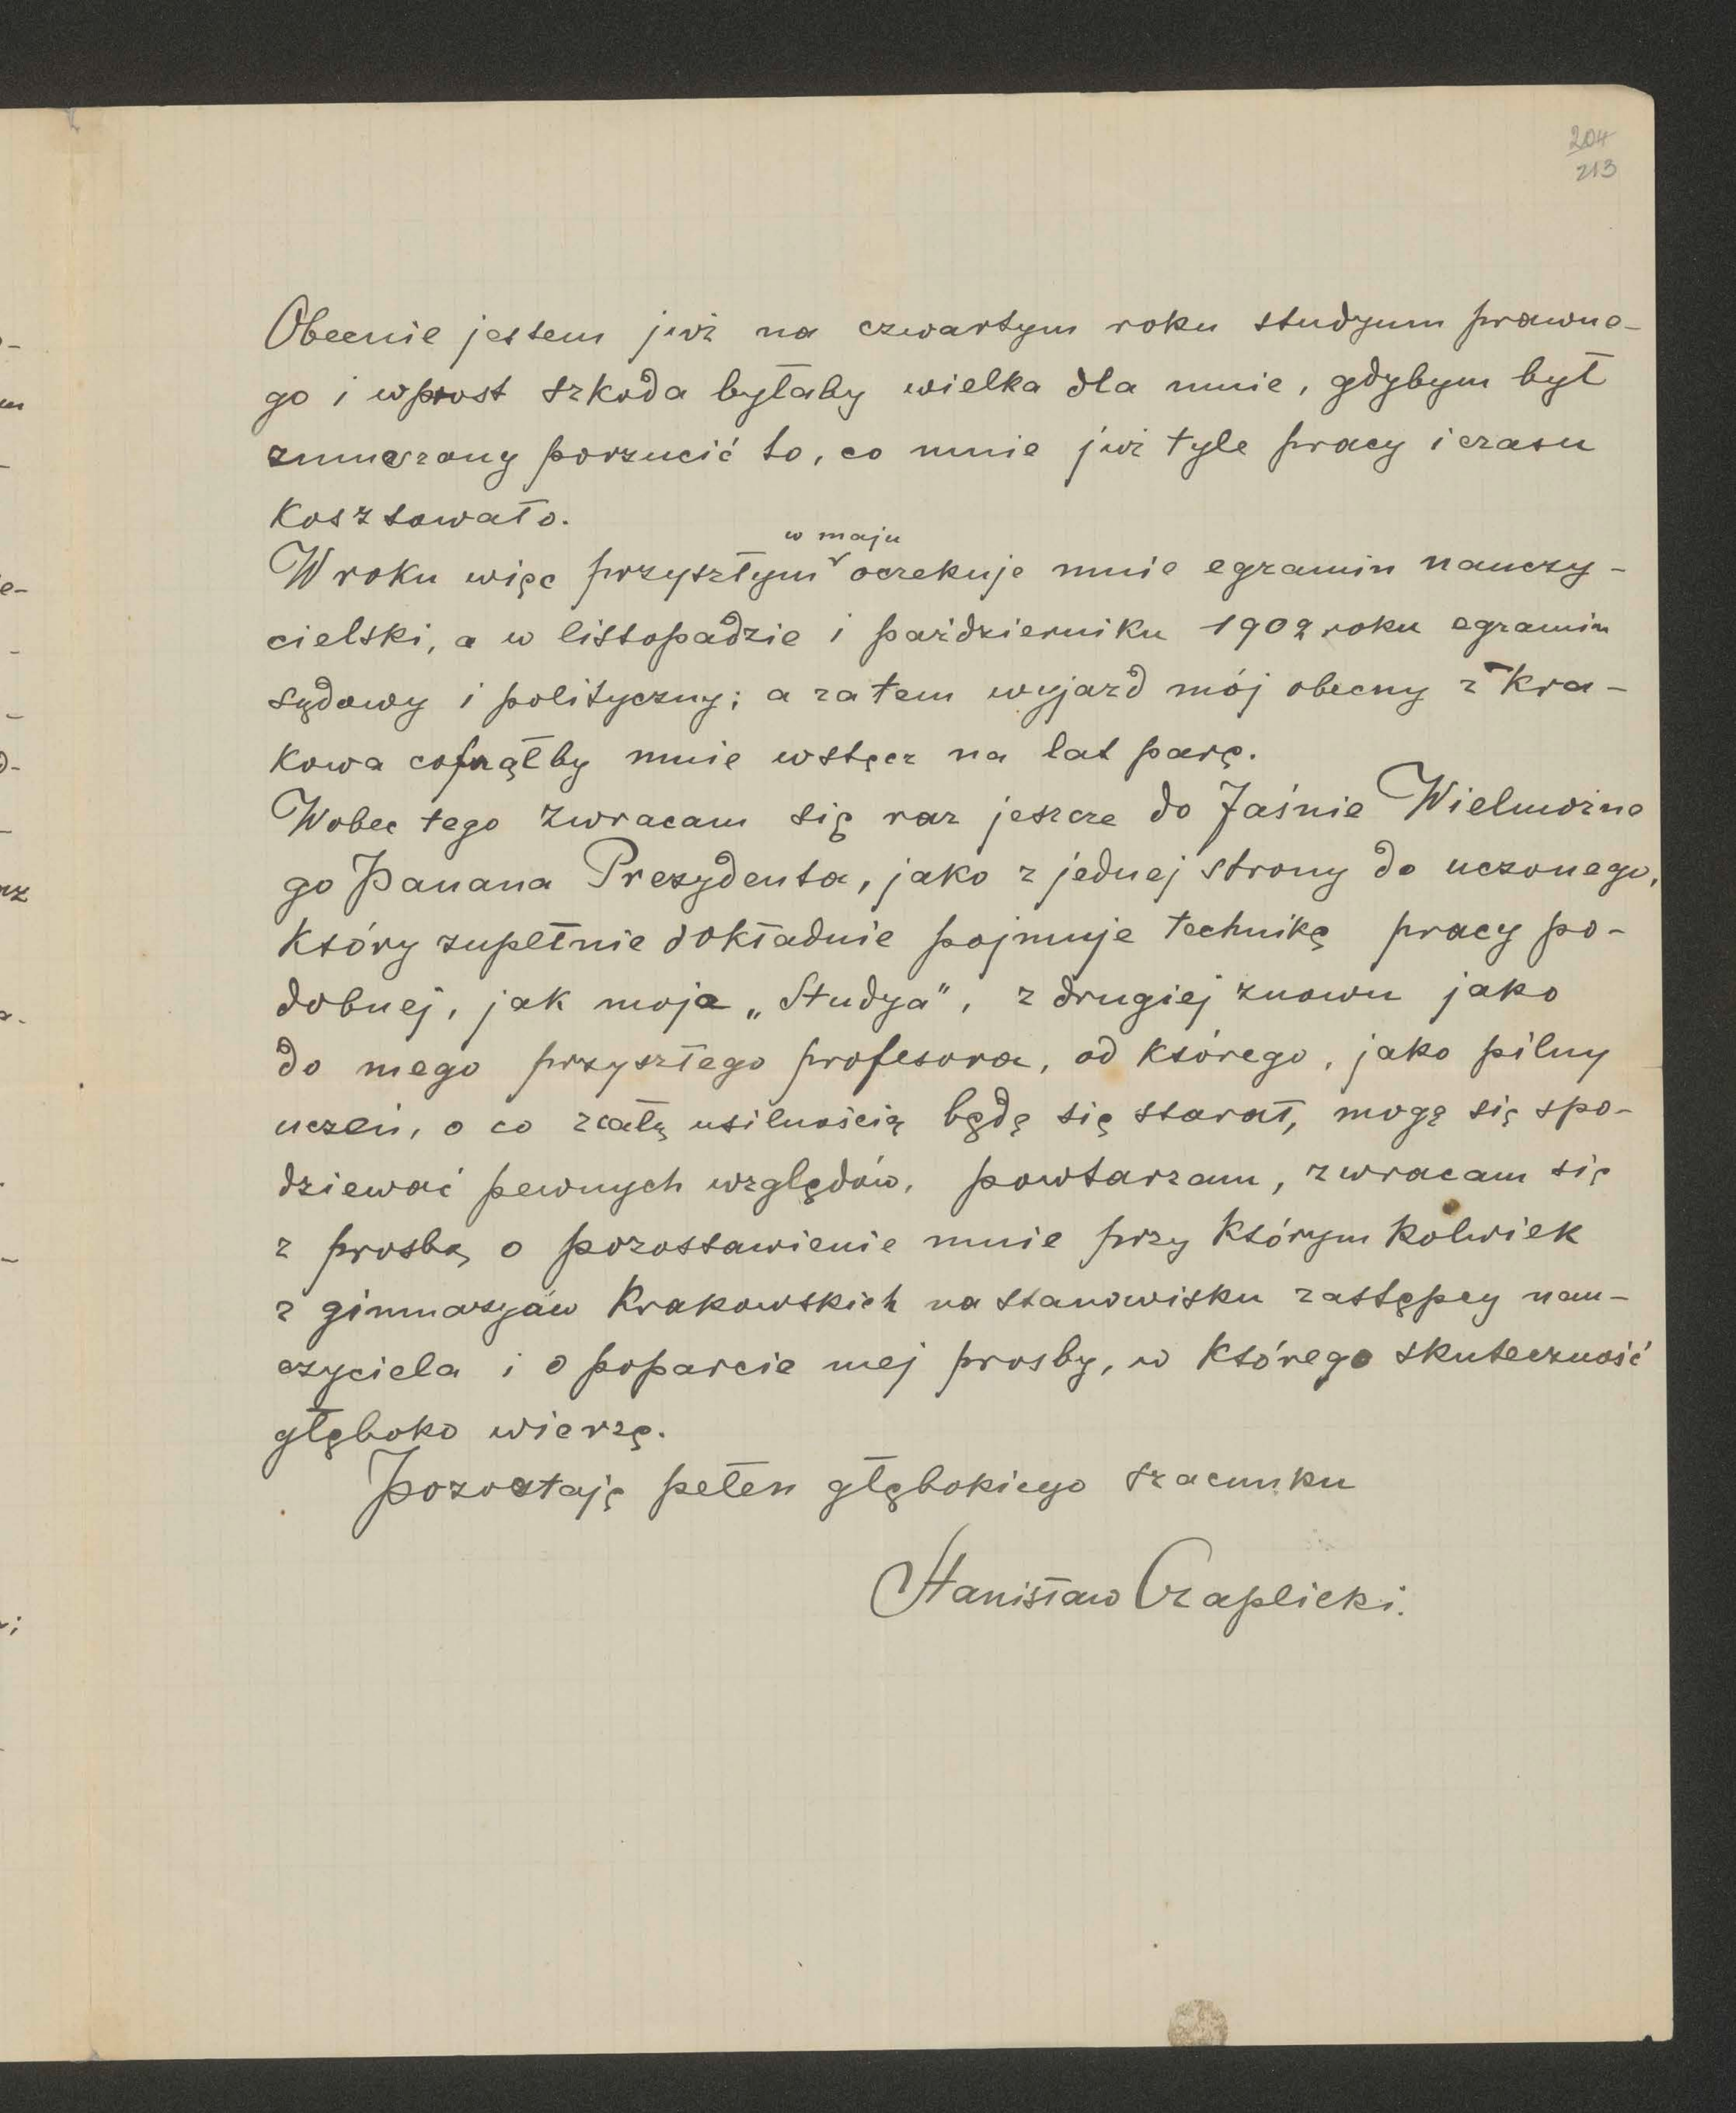 204
213
Obecnie jestem już na czwartym roku studyum prawne-
go i wprost szkoda byłaby wielka dla mnie, gdybym był
zmuszony porzucić to, co mnie już tyle pracy i czasu
kosztowało.
w maju
W roku więc przyszłym oczekuje mnie egzamin nauczy-
cielski, a w listopadzie i październiku 1902 roku egzamin
sądowy i polityczny; a zatem wyjazd mój obecny z Kra-
kowa cofnąłby mnie wstecz na lat parę.
Wobec tego zwracam się raz jeszcze do Jaśnie Wielmożne
go Panana Prezydenta, jako z jednej strony do uczonego,
który zupełnie dokładnie pojmuje technikę pracy po-
dobnej, jak moja „Studya", z drugiej znowu jako
do mego przyszłego profesora, od którego, jako pilny
uczeń, o co z całą usilnością będę się starał, mogę się spo-
dziewać pewnych względów, powtarzam, zwracam się
z prosbą o pozostawienie mnie przy którym kolwiek
z gimnazyów Krakowskich na stanowisku zastępcy nau-
czyciela i o poparcie mej prosby, w którego skuteczność
głęboko wierzę.
Pozostaję pełen głębokiego szacunku
Stanisław Czaplicki.